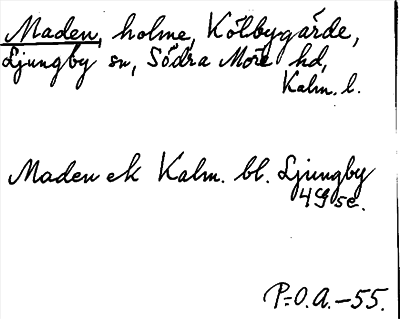 Maden, holme, Kölbygärde,
Ljungby sn, Södra Möre hd,
Kalm. l.
Maden ek Kalm. bl. Ljungby
4G se.
P=O.A.-55.